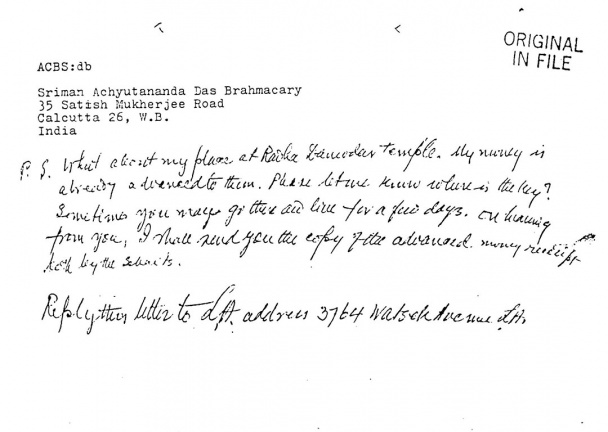 ORIGINAL
IN FILE
ACBS:db
Sriman Achyutananda Das Brahmacary
35 Satish Mukherjee Road
Calcutta 26, W.B.
India
P.S. What about my place at Radha Damodar temple. My money is
already advanced to them. Please let me know where is the key?
Sometimes you may go there and live for a few days. On hearing
from you, I shall send you the copy of the advanced money receipt
both by the Sebaits.
Reply this letter to L.A. address 3764 Watseka Avenue L.A.